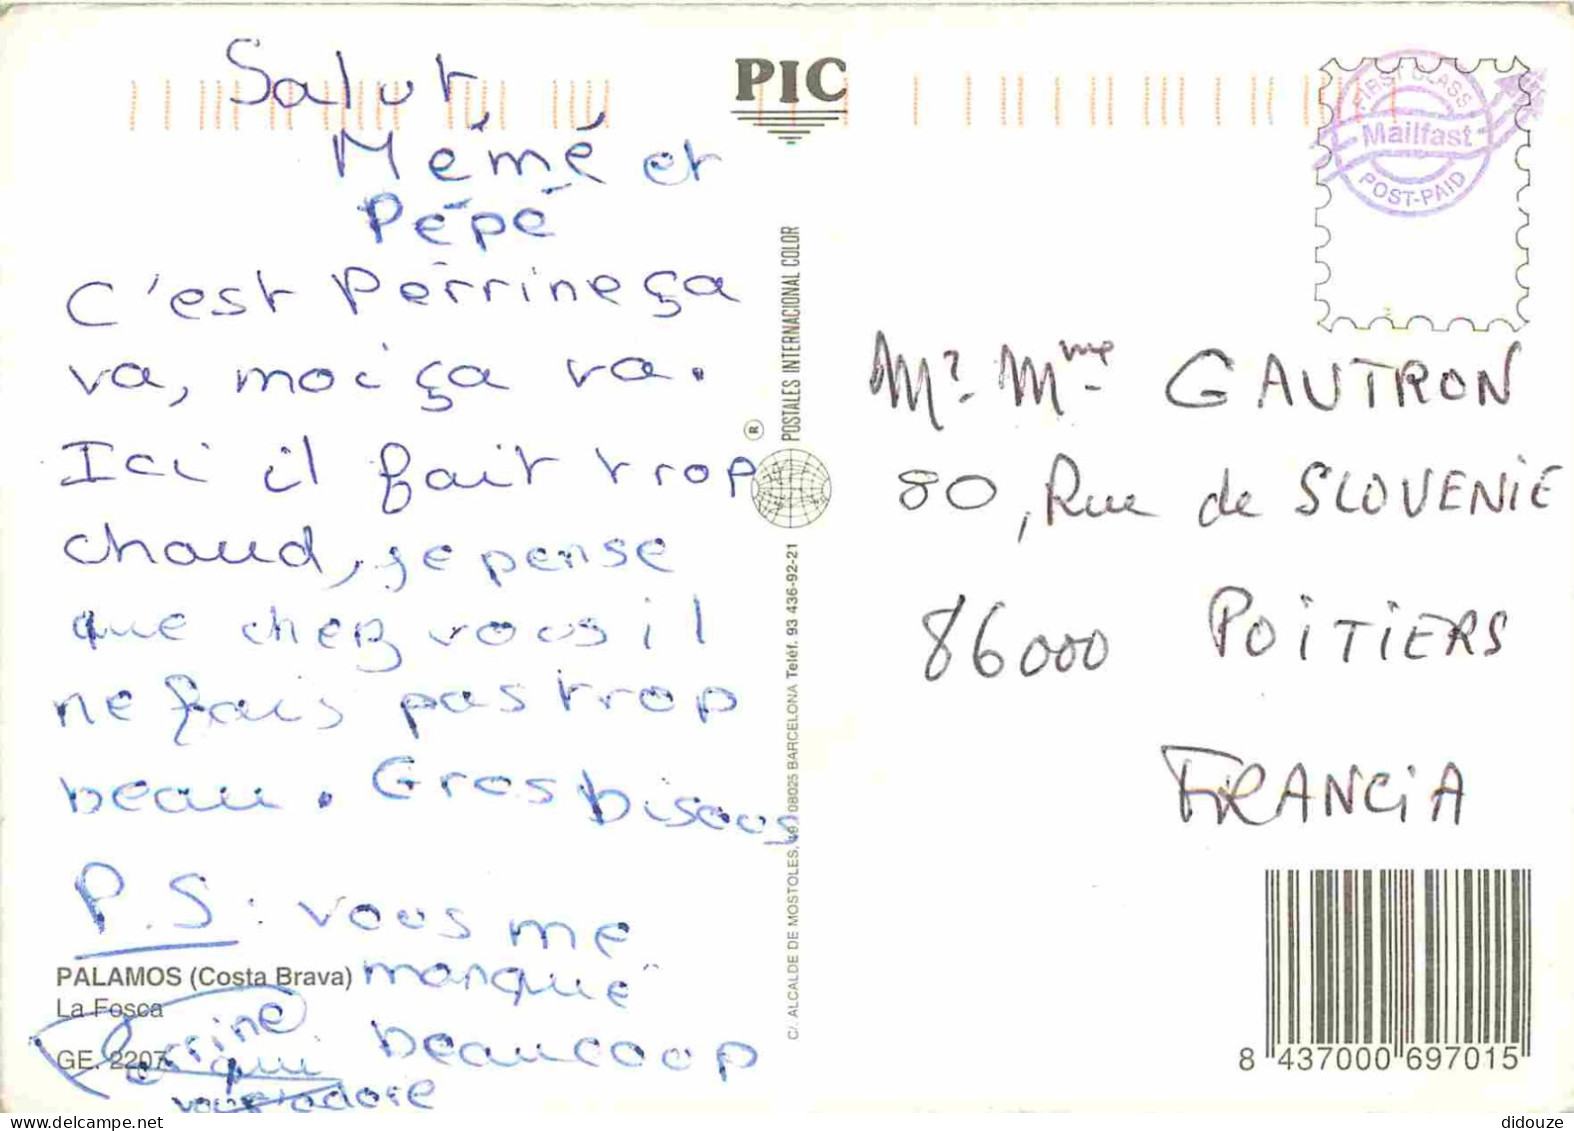 Salut
Mémé et
Pépé
C'est Perrine ça
va, moi ça va.
Ici il fait trop
chaud, je pense
que chez vous il
ne fais pas trop
beau. Gros bisous
P.S : vous me
manque
beaucoup
Perrine
qui
vous adore
PALAMOS (Costa Brava)
La Fosca
GE. 2207
PIC
C/. ALCALDE DE MOSTOLES, 08025 BARCELONA Teléf. 93 436-92-21
® POSTALES INTERNACIONAL COLOR
FIRST CLASS
Mailfast
POST-PAID
Mr. Mme GAUTRON
80, Rue de SLOVENIE
86000 POITIERS
FRANCIA
8 437000 697015
didouze